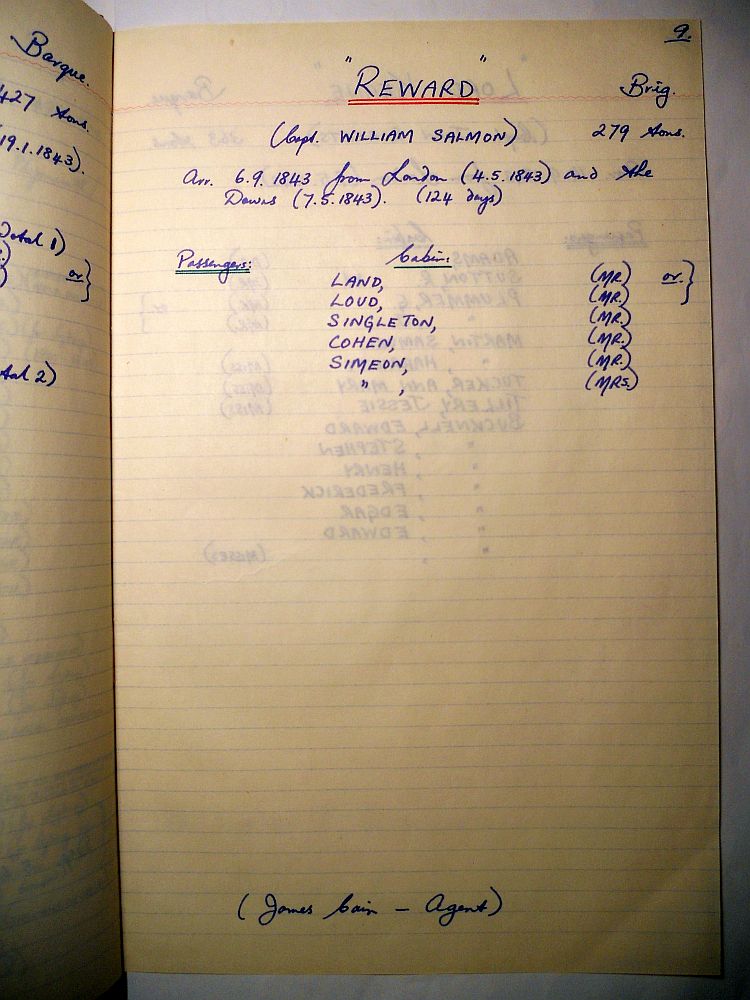 Barque.
427 tons.
19.1.1843).
Total 1)
or }
tal 2)
9.
"REWARD" Brig.
(Capt. WILLIAM SALMON) 279 tons.
Arr. 6.9.1843 from London (4.5.1843) and the
Downs (7.5.1843). (124 days)
Passengers: Cabin:
LAND, (MR.) or. }
LOUD, (MR.)
SINGLETON, (MR.)
COHEN, (MR.)
SIMEON, (MR.)
" , (MRS.)
(James Cain - Agent)